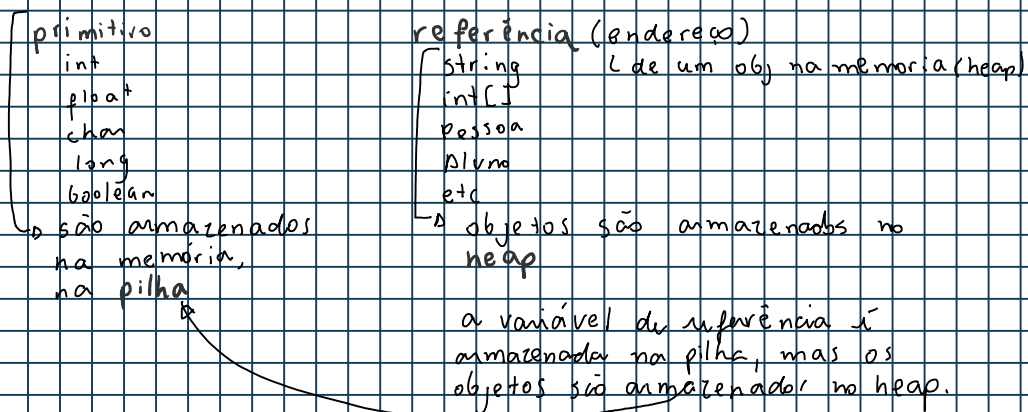 primitivo
int
float
char
long
boolean
são armazenados
na memória,
na pilha
referência (endereço)
string
↳ de um obj na memoria (heap)
int[]
pessoa
Aluno
etc
objetos são armazenados no
heap
a variável de referência é
armazenada na pilha, mas os
objetos são armazenador no heap.